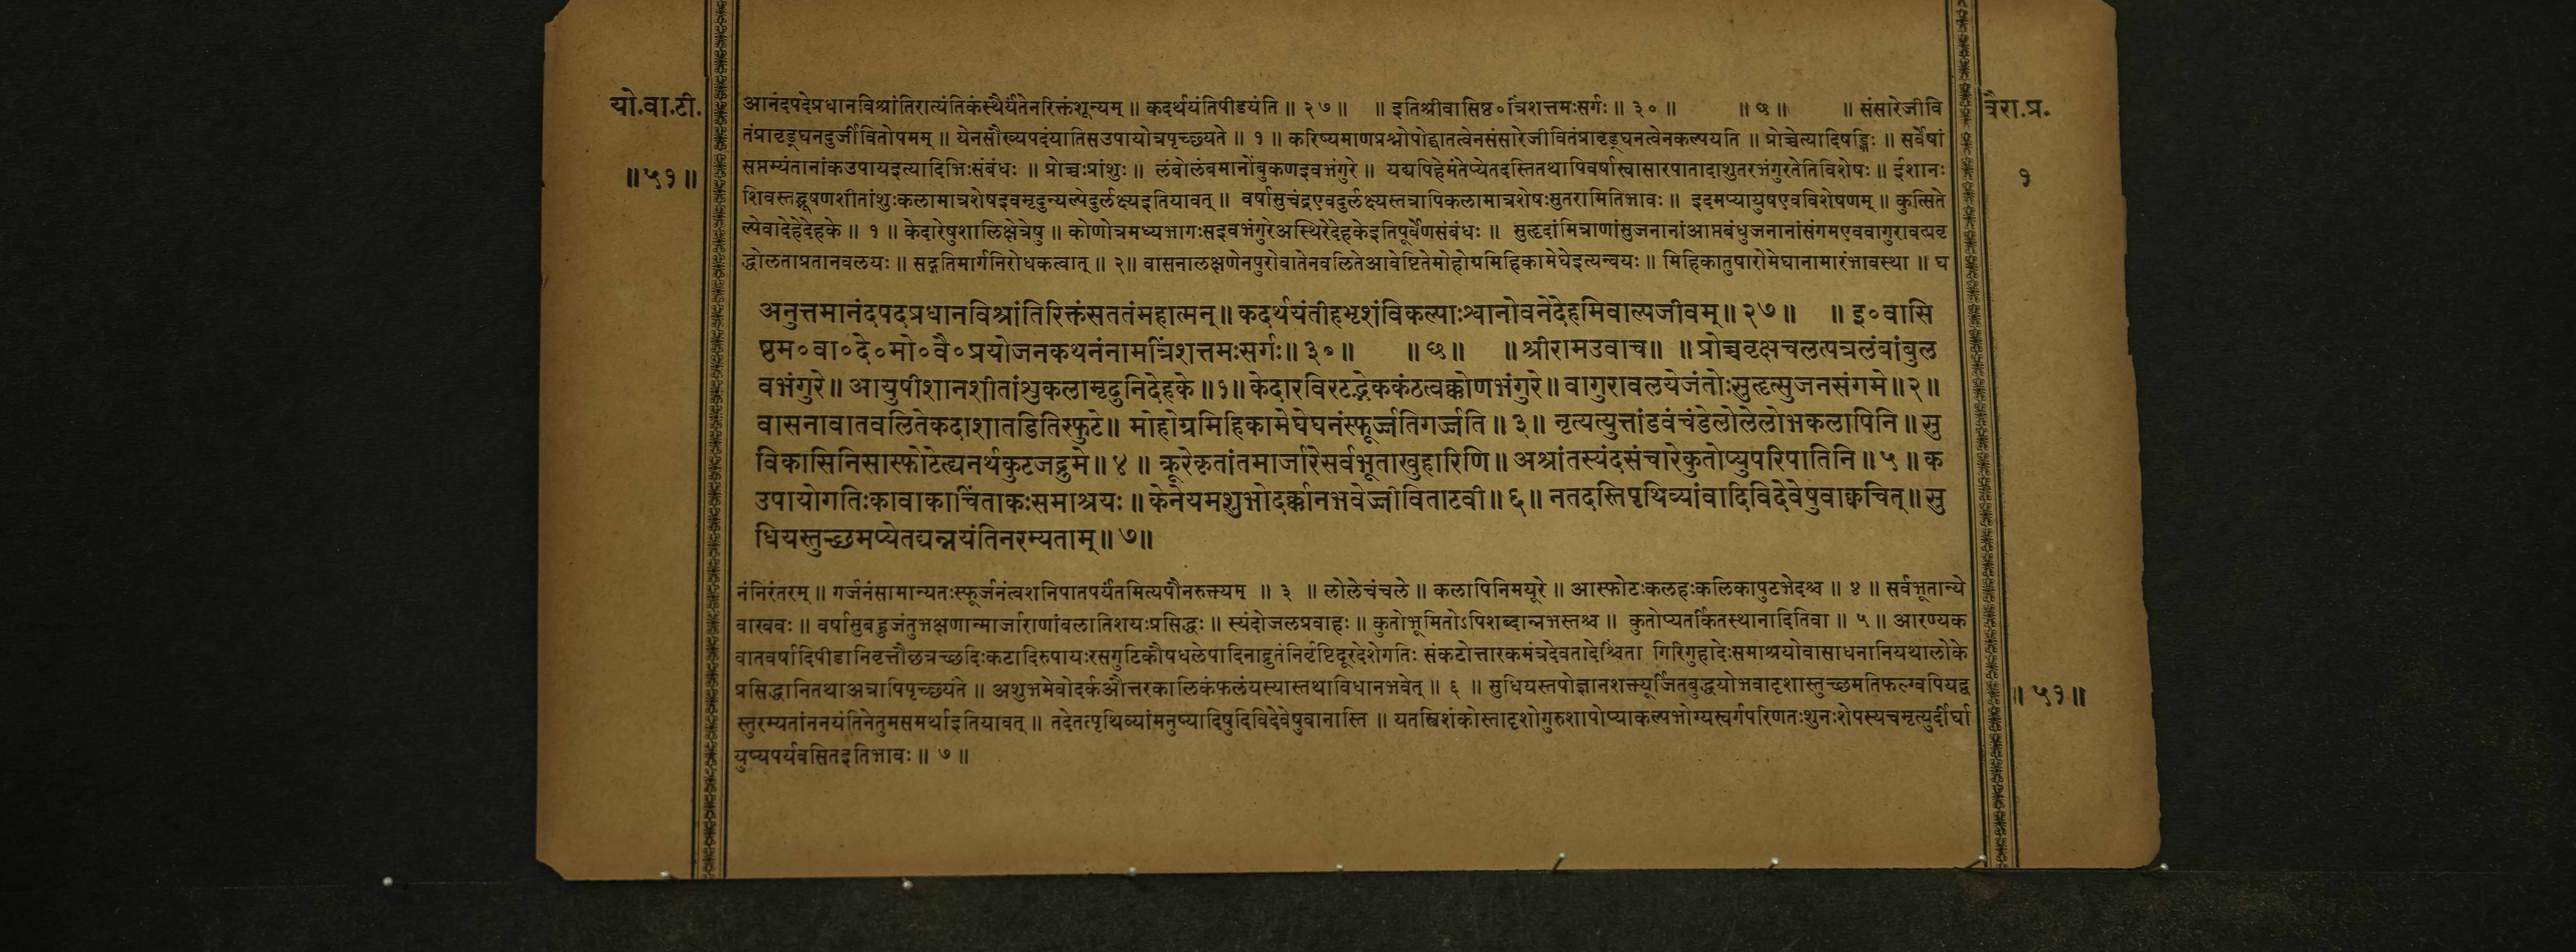 यो.वा.टी.
॥५१॥
वैरा.प्र.
१
आनंदपदेप्रधानविश्रांतिरात्यंतिकंस्थैर्यंतेनरिक्तंशून्यम् ॥ कदर्थयंतिपीडयंति ॥ २७ ॥ ॥ इतिश्रीवासिष्ठ०त्रिंशत्तमःसर्गः ॥ ३० ॥ ॥ ७५ ॥ ॥ संसारेजीवि
तंप्रावृड्घनदुर्जीवितोपमम् ॥ येनसौख्यपदंयातिसउपायोत्रपृच्छ्यते ॥ १ ॥ करिष्यमाणप्रश्नोपोद्घातत्वेनसंसारेजीवितंप्रावृड्घनत्वेनकल्पयति ॥ प्रोच्चेत्यादिषड्भिः ॥ सर्वेषां
सप्तम्यंतानांकउपायइत्यादिभिःसंबंधः ॥ प्रोच्चःप्रांशुः ॥ लंबोलंबमानोंबुकणइवभंगुरे ॥ यद्यपिहेमंतेप्येतदस्तितथापिवर्षास्वासारपातादाशुतरभंगुरतेतिविशेषः ॥ ईशानः
शिवस्तद्भूषणशीतांशुःकलामात्रशेषइवमृदुन्यल्पेदुर्लक्ष्यइतियावत् ॥ वर्षासुचंद्रएवदुर्लक्ष्यस्तत्रापिकलामात्रशेषःसुतरामितिभावः ॥ इदमप्यायुषएवविशेषणम् ॥ कुत्सिते
ल्पेवादेहेदेहके ॥ १ ॥ केदारेषुशालिक्षेत्रेषु ॥ कोणोत्रमध्यभागःसइवभंगुरेअस्थिरेदेहकेइतिपूर्वेणसंबंधः ॥ सुहृदांमित्राणांसुजनानांआप्तबंधुजनानांसंगमएववागुरावत्पवृ
द्धोलताप्रतानवलयः ॥ सद्गतिमार्गनिरोधकत्वात् ॥ २॥ वासनालक्षणेनपुरोवातेनवलितेआवेष्टितेमोहोग्रमिहिकामेघेइत्यन्वयः ॥ मिहिकातुषारोमेघानामारंभावस्था ॥ घ
अनुत्तमानंदपदप्रधानविश्रांतिरिक्तंसततंमहात्मन् ॥ कदर्थयंतीहभृशंविकल्पाःश्वानोवनेदेहमिवाल्पजीवम् ॥ २७ ॥ ॥ इ०वासि
ष्ठम०वा०दे०मो०वै०प्रयोजनकथनंनामत्रिंशत्तमःसर्गः ॥ ३० ॥ ॥ ७५ ॥ ॥ श्रीरामउवाच ॥ ॥ प्रोच्चवृक्षचलत्पत्रलंबांबुल
वभंगुरे ॥ आयुषीशानशीतांशुकलामृदुनिदेहके ॥१॥ केदारविरटद्भेककंठत्वक्कोणभंगुरे ॥ वागुरावलयेजंतोःसुहृत्सुजनसंगमे ॥२॥
वासनावातवलितेकदाशातडितिस्फुटे ॥ मोहोग्रमिहिकामेघेघनंस्फूर्ज्जतिगर्ज्जति ॥ ३ ॥ नृत्यत्युत्तांडवंचंडेलोलेलोभकलापिनि ॥ सु
विकासिनिसास्फोटेत्द्यनर्थकुटजद्रुमे ॥ ४ ॥ क्रूरेकृतांतमार्जारेसर्वभूताखुहारिणि ॥ अश्रांतस्यंदसंचारेकुतोप्युपरिपातिनि ॥ ५ ॥ क
उपायोगतिःकावाकाचिंताकःसमाश्रयः ॥ केनेयमशुभोदर्क्कानभवेज्जीविताटवी ॥ ६ ॥ नतदस्तिपृथिव्यांवादिविदेवेषुवाक्वचित् ॥ सु
धियस्तुच्छमप्येतद्यन्नयंतिनरम्यताम् ॥ ७॥
नंनिरंतरम् ॥ गर्जनंसामान्यतःस्फूर्जनंत्वशनिपातपर्यंतमित्यपौनरुक्त्यम् ॥ ३ ॥ लोलेचंचले ॥ कलापिनिमयूरे ॥ आस्फोटःकलहःकलिकापुटभेदश्च ॥ ४ ॥ सर्वभूतान्ये
वाखवः ॥ वर्षासुबहुजंतुभक्षणान्मार्जाराणांबलातिशयःप्रसिद्धः ॥ स्यंदोजलप्रवाहः ॥ कुतोभूमितोऽपिशब्दान्नभस्तश्च ॥ कुतोप्यतर्कितस्थानादितिवा ॥ ५ ॥ आरण्यक
वातवर्षादिपीडानिवृत्तौछत्रच्छदिःकटादिरुपायःरसगुटिकौषधलेपादिनाद्रुतंनिर्वृष्टिदूरदेशेगतिः संकटोत्तारकमंत्रदेवतादेश्चिंता गिरिगुहादेःसमाश्रयोवासाधनानियथालोके
प्रसिद्धानितथाअत्रापिपृच्छ्यंते ॥ अशुभमेवोदर्कऔत्तरकालिकंफलंयस्यास्तथाविधानभवेत् ॥ ६ ॥ सुधियस्तपोज्ञानशक्त्यूर्जितबुद्धयोभवादृशास्तुच्छमतिफल्ग्वपियद्व
स्तुरम्यतांननयंतिनेतुमसमर्थाइतियावत् ॥ तदेतत्पृथिव्यांमनुष्यादिषुदिविदेवेषुवानास्ति ॥ यतस्त्रिशंकोस्तादृशोगुरुशापोप्याकल्पभोग्यस्वर्गपरिणतःशुनःशेपस्यचमृत्युर्दीर्घा
युष्यपर्यवसितइतिभावः ॥ ७ ॥
॥ ५१॥